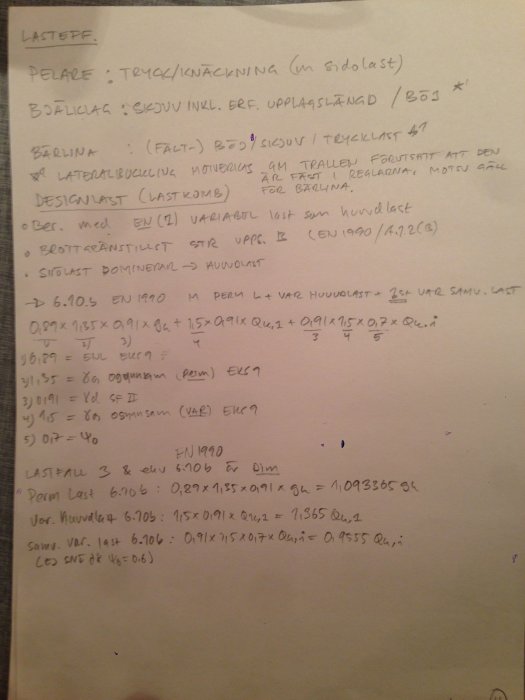 LASTEFF.
PELARE : TRYCK/KNÄCKNING (m sidolast)
BJÄLKLAG : SKJUV INKL. ERF. UPPLAGSLÄNGD / BÖJ *
BÄRLINA : (FÄLT-) BÖJ / SKJUV / TRYCKLAST
* LATERALBUCKLING MOTVERKAS GM TRALLEN FÖRUTSATT ATT DEN
ÄR FÄST I REGLARNA, MOTSV GÄLL
FÖR BÄRLINA.
DESIGNLAST (LASTKOMB)
• Ber. med EN (1) VARIABEL last som huvudlast
• BROTTGRÄNSTILLST STR UPPS. B (EN 1990 / A.1.2(B)
• SIDLAST DOMINERAR → HUVUDLAST
→ 6.10.b EN 1990 M PERM L + VAR HUVUDLAST + VAR SAMV. LAST
0,89 × 1,35 × 0,91 × gk + 1,5 × 0,91 × Qk,1 + 0,91 × 1,5 × 0,7 × Qk,i
1) 2) 3) 4 3 4 5
1) 0,89 = ENL EKS 9
2) 1,35 = γG ogynnsam (PERM) EKS 9
3) 0,91 = γd SF II
4) 1,5 = ogynnsam (VAR) EKS 9
5) 0,7 = ψ0
EN 1990
LASTFALL 3 & ekv 6.10b är DIM
Perm Last 6.10b : 0,89 × 1,35 × 0,91 × gk = 1,093365 gk
Var. Huvudlast 6.10b : 1,5 × 0,91 × Qk,1 = 1,365 Qk,1
Samv. var. last 6.10b : 0,91 × 1,5 × 0,7 × Qk,i = 0,9555 Qk,i
(EJ SNÖ ψ0 = 0.6)